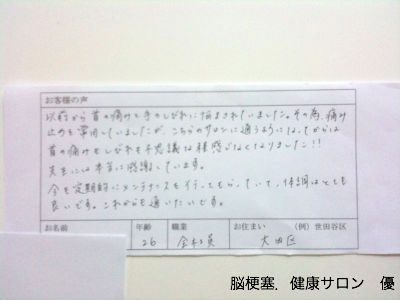 お客様の声
以前から首の痛みと手のしびれに悩まされていました。その為、痛み
止めを常用していましたが、こちらのサロンに通うようになってからは
首の痛みもしびれも不思議な様感じなくなりました!!
先生には本当に感謝しています。
今も定期的にメンテナンスを行ってもらっていて、体調はとても
良いです。これからも通いたいです。
お名前 年齢 職業 お住まい (例)世田谷区
26 会社員 大田区
脳梗塞.健康サロン 優